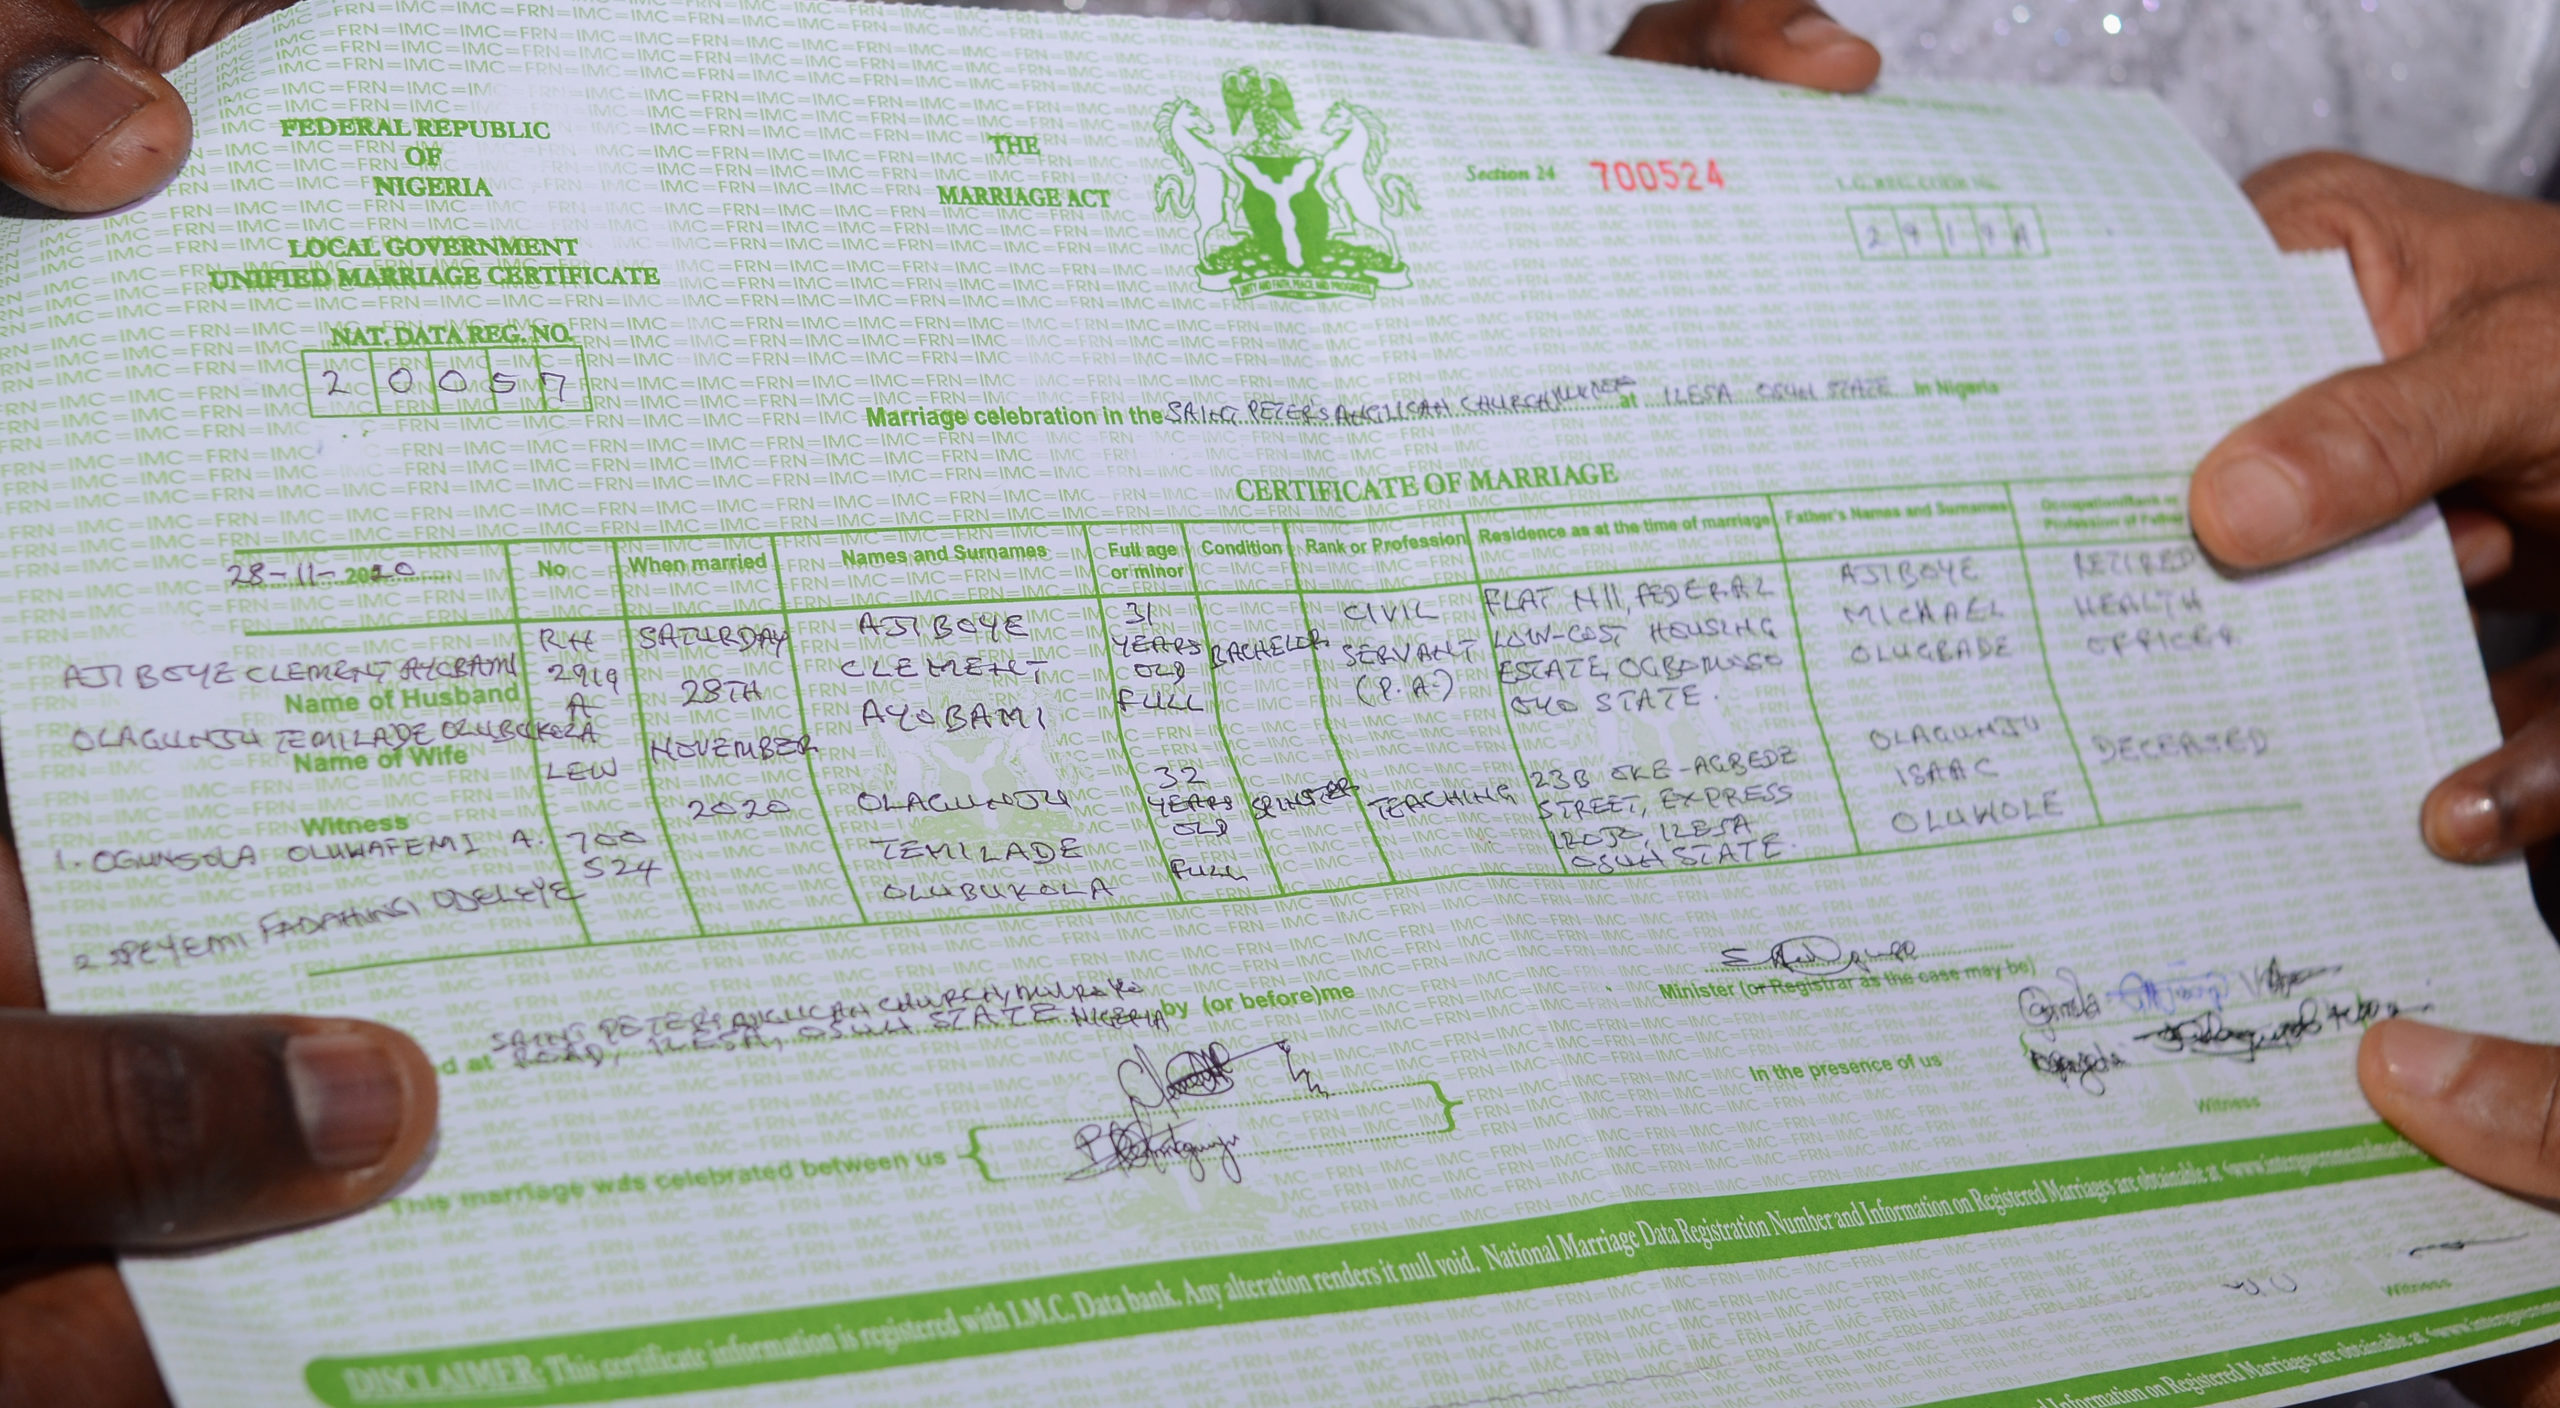 FEDERAL REPUBLIC
OF
NIGERIA
LOCAL GOVERNMENT
UNIFIED MARRIAGE CERTIFICATE
NAT. DATA REG. NO.
2 0 0 5 7
THE
MARRIAGE ACT
UNITY AND FAITH, PEACE AND PROGRESS
Section 24 700524
2 9 1 9 A
Marriage celebration in the SAINT PETER'S ANGLICAN CHURCH at ILESA OSUN STATE in Nigeria
CERTIFICATE OF MARRIAGE
28-11-2020
No
When married
Names and Surnames
Full age
or minor
Condition
Rank or Profession
Residence as at the time of marriage
Father's Names and Surnames
Occupation/Rank or
Profession of Father
AJIBOYE CLEMENT AYOBAMI
Name of Husband
OLAGUNJU TEMILADE OLUBUKOLA
Name of Wife
Witness
1. OGUNSOLA OLUWAFEMI A.
2. OPEYEMI FADAHUNSI ODELEYE
RH
2919
A
LEW
700
524
SATURDAY
28TH
NOVEMBER
2020
AJIBOYE
CLEMENT
AYOBAMI
31
YEARS
OLD
FULL
BACHELOR
CIVIL
SERVANT
(P.A.)
FLAT N11, FEDERAL
LOW-COST HOUSING
ESTATE, OGBOMOSO
OYO STATE.
AJIBOYE
MICHAEL
OLUGBADE
RETIRED
HEALTH
OFFICER
OLAGUNJU
TEMILADE
OLUBUKOLA
32
YEARS
OLD
FULL
SPINSTER
TEACHING
23B OKE-AGBEDE
STREET, EXPRESS
IROJO, ILESA
OSUN STATE.
OLAGUNJU
ISAAC
OLUWOLE
DECEASED
d at SAINT PETER'S ANGLICAN CHURCH,
ROAD, ILESA, OSUN STATE NIGERIA by (or before) me
Minister (or Registrar as the case may be)
This marriage was celebrated between us
In the presence of us
Witness
DISCLAIMER: This certificate information is registered with I.M.C. Data bank. Any alteration renders it null void. National Marriage Data Registration Number and Information on Registered Marriages are obtainable at
Witness
Information on Registered Marriages are obtainable at